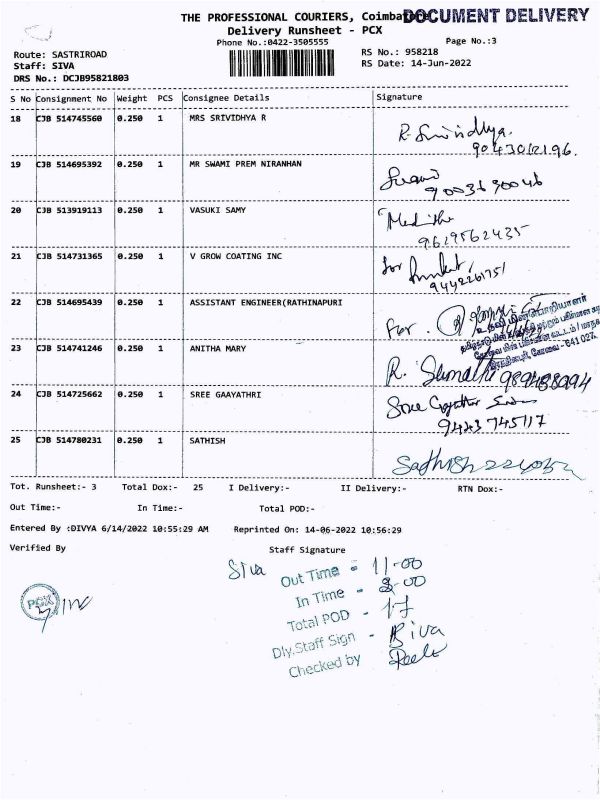 THE PROFESSIONAL COURIERS, Coimbatore
DOCUMENT DELIVERY
Delivery Runsheet - PCX
Phone No.:0422-3505555
Page No.:3
Route: SASTRIROAD
RS No.: 958218
Staff: SIVA
RS Date: 14-Jun-2022
DRS No.: DCJB95821803
S No Consignment No Weight PCS Consignee Details Signature
18 CJB 514745560 0.250 1 MRS SRIVIDHYA R R. Srividhya.
9043012196.
19 CJB 514695392 0.250 1 MR SWAMI PREM NIRANHAN Swami
9003630046
20 CJB 513919113 0.250 1 VASUKI SAMY
9629562435
21 CJB 514731365 0.250 1 V GROW COATING INC for
9442261751
22 CJB 514695439 0.250 1 ASSISTANT ENGINEER(RATHINAPURI For.
உதவி மின்பொறியாளர்
கோவை - 641 027.
23 CJB 514741246 0.250 1 ANITHA MARY R. Sumathi 9894388094
24 CJB 514725662 0.250 1 SREE GAAYATHRI Sree
9443745117
25 CJB 514780231 0.250 1 SATHISH Sathish
Tot. Runsheet:- 3 Total Dox:- 25 I Delivery:- II Delivery:- RTN Dox:-
Out Time:- In Time:- Total POD:-
Entered By :DIVYA 6/14/2022 10:55:29 AM Reprinted On: 14-06-2022 10:56:29
Verified By Staff Signature
Siva Out Time - 11-00
In Time - 3-00
PCX
Total POD - 17
Dly.Staff Sign - Siva
Checked by